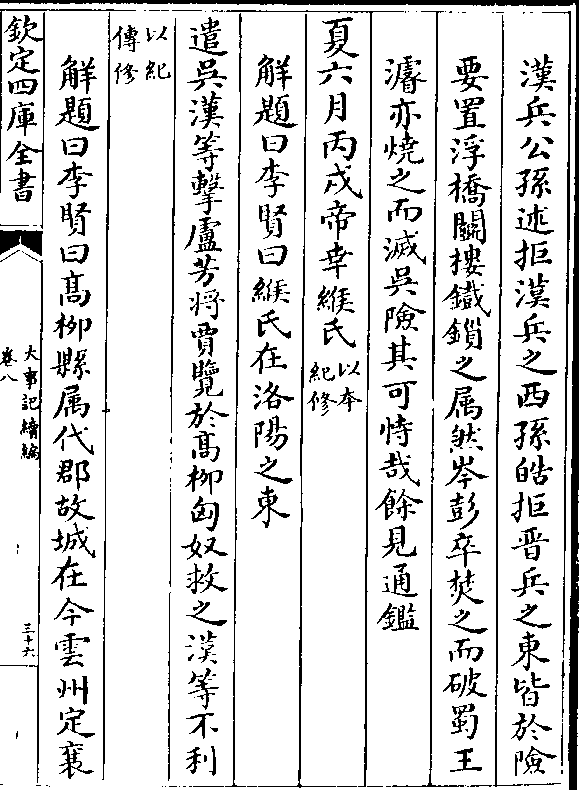 漢兵公孫述拒漢兵之西孫皓拒晋兵之東皆於險
要置浮橋鬭樓鐵鎖之属然岑彭卒焚之而破蜀王
濬亦燒之而滅吳險其可恃哉餘見通鑑
夏六月丙戌帝幸緱氏以本紀修
解題曰李賢曰緱氏在洛陽之東
遣吳漢等擊盧芳将賈覽於髙柳匈奴救之漢等不利
以紀傳修
解題曰李賢曰髙柳縣属代郡故城在今雲州定襄
欽定四庫全書
大事記續編
卷八
三十六